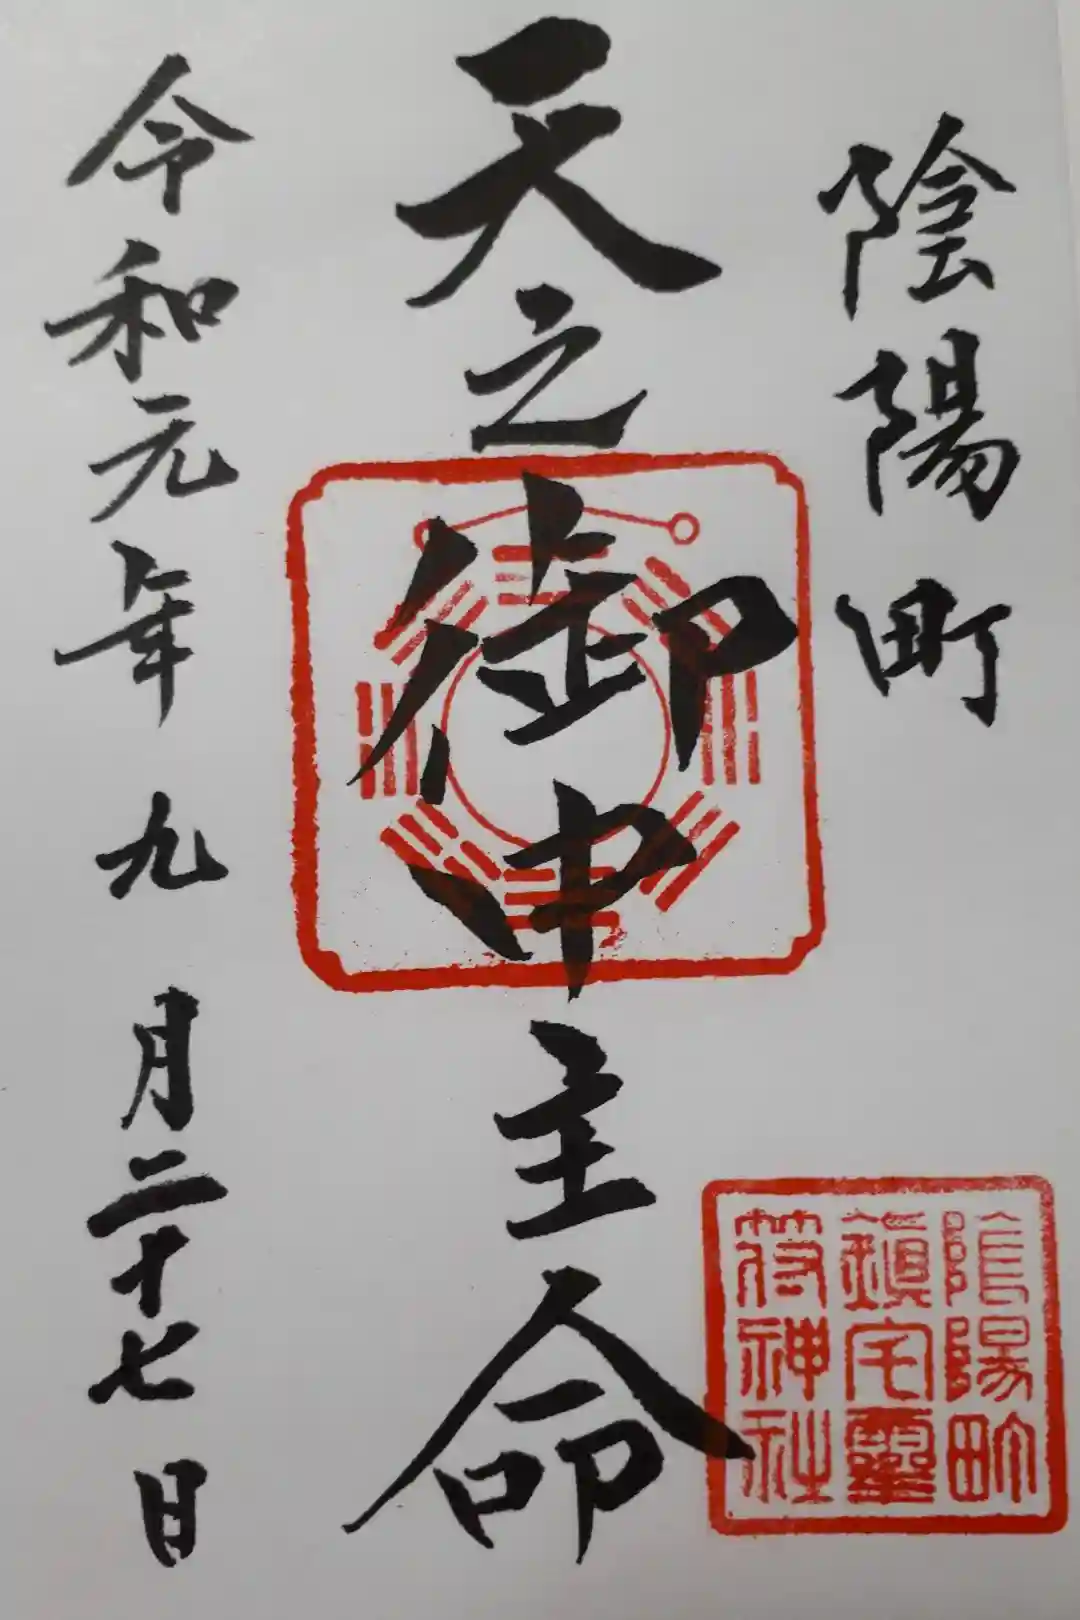 陰陽町
天之御中主命
令和元年九月二十七日
陰陽町
鎮宅霊
符神社